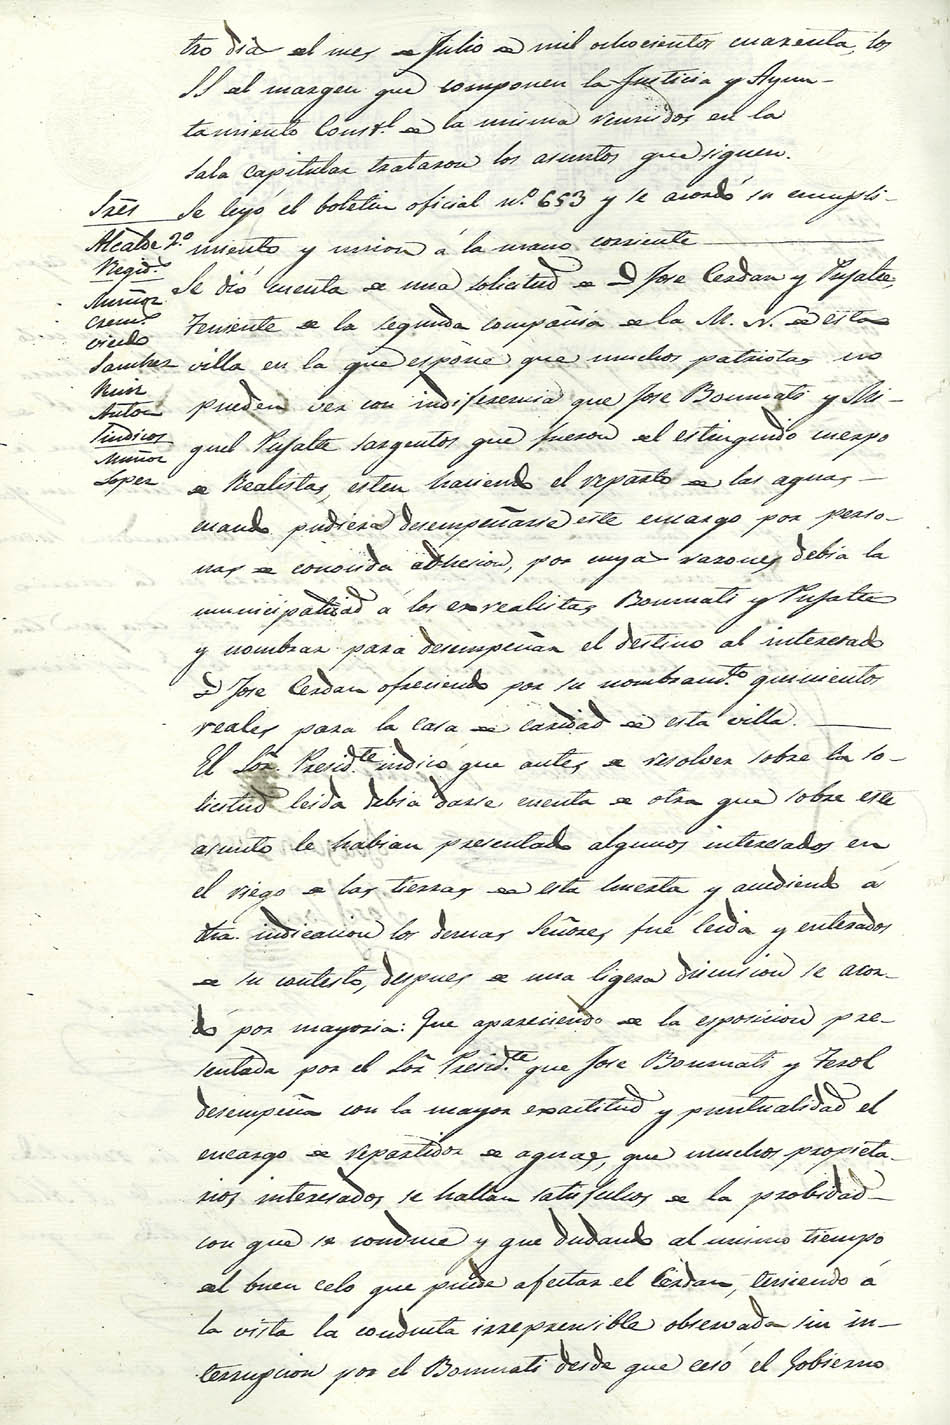 tro dia del mes de Julio de mil ochocientos cuarenta, los
SS del margen que componen la Justicia y Ayun-
tamiento Const.l de la misma reunidos en la
sala capitular trataron los asuntos que siguen.
Sres
Alcalde 2.º
Regid.s
Muñoz
Crem.s
Oviedo
Sanchez
Ruiz
Anton
Sindicos
Muñoz
Lopez
Se leyó el boletin oficial n.º 653 y se acordó su cumpli-
miento y union á la mano corriente
Se dió cuenta de una solicitud de D Jose Cerdan y Pujalte,
Teniente de la segunda compañia de la M. N. de esta
villa en la que espone que muchos patriotas no
pueden ver con indiferencia que Jose Bonmati y Mi-
guel Pujalte sargentos que fueron del estinguido cuerpo
de Realistas, esten haciendo el reparto de las aguas,
cuando pudiera desempeñarse este encargo por perso-
nas de conocida adhesion, por cuya razones debia la
municipalidad á los exrealistas Bonmati y Pujalte
y nombrar para desempeñar el destino al interesado
D Jose Cerdan ofreciendo por su nombram.to quinientos
reales para la casa de caridad de esta villa.
El Sor. Presid.te indicó que antes de resolver sobre la so-
licitud leida debia darse cuenta de otra que sobre este
asunto le habian presentado algunos interesados en
el riego de las tierras de esta huerta y accediendo á
dha. indicacion los demas Señores, fué leida y enterados
de su contesto, despues de una ligera discusion se acor-
dó por mayoria: Que apareciendo de la esposicion pre-
sentada por el Sor. Presid.te que Jose Bonmati y Terol
desempeña con la mayor exactitud y puntualidad el
encargo de repartidor de aguas, que muchos propieta-
rios interesados se hallan satisfechos de la probidad
con que se conduce y que dudando al mismo tiempo
del buen celo que puede afectar el Cerdan, teniendo á
la vista la conducta irreprensible observada sin in-
terrupcion por el Bonmati desde que cesó el Gobierno